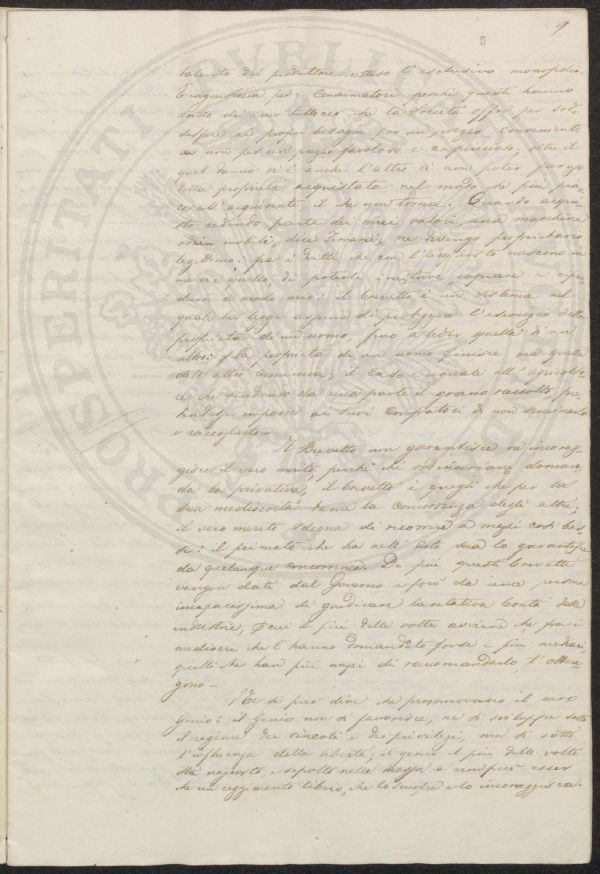 9
talento del produttore atteso l'esclusivo monopolio.
E' ingiustizia per i Consumatori perché questi hanno
dritto di aver tuttociò che la Società offre per sod-
disfare ai propri bisogni per un prezzo conveniente
e non per un prezzo favoloso e capriccioso, oltre il
qual danno vi è anche l'altro di non poter far uso
della proprietà acquistata nel modo che più pia-
ce all' acquirente il che non torna. Quando acqui-
sto cedendo parte dei miei valori, una macchina
ossia mobili, dice Simone, ne divengo proprietario
legittimo: fra i dritti che con l'acquisto nascono in
me vi è quello, di poterli imitare, copiare e ripro-
durre a modo mio: il brevetto è un sistema nel
quale la legge a pena di proteggere l'esercizio della
proprietà di un uomo, fino a leder quella di un
altro: la proprietà di un uomo finisce ove quella
dell'altro comincia; il caso è uguale all' agricolto-
re che vendendo da una parte il grano raccolto, pre-
tendesse imporre ai suoi Compratori di non seminarlo
e raccoglierlo.
Il Brevetto non garantisce né incorag-
gisce il vero merito, perché chi ordinariamente doman-
da la privativa, il brevetto è quegli che per la
sua mediocrità teme la concorrenza degli altri;
il vero merito sdegna di ricorrere a mezzi così bas-
si: il primato che ha nell' arte sua lo garantisce
da qualunque concorrenza. Di più questi brevetti
vengon dati dal Governo e però da una persona
incapacissima di giudicare la relativa bontà delle
industrie, per cui il più delle volte avviene che fra i
mediocri che l'hanno domandato forse i più mediocri,
quelli che han più mezzi di raccomandarlo, l'otten-
gono.
Né si può dire che promuovano il vero
Genio: il Genio non si favorisce, né si sviluppa sotto
il regime dei vincoli e dei privilegi, ma di sotto
l'influenza della libertà; il genio il più delle volte
sta nascosto, e sepolto nella massa e non può esser
che un reggimento libero, che lo scuopra e lo incoraggisca.